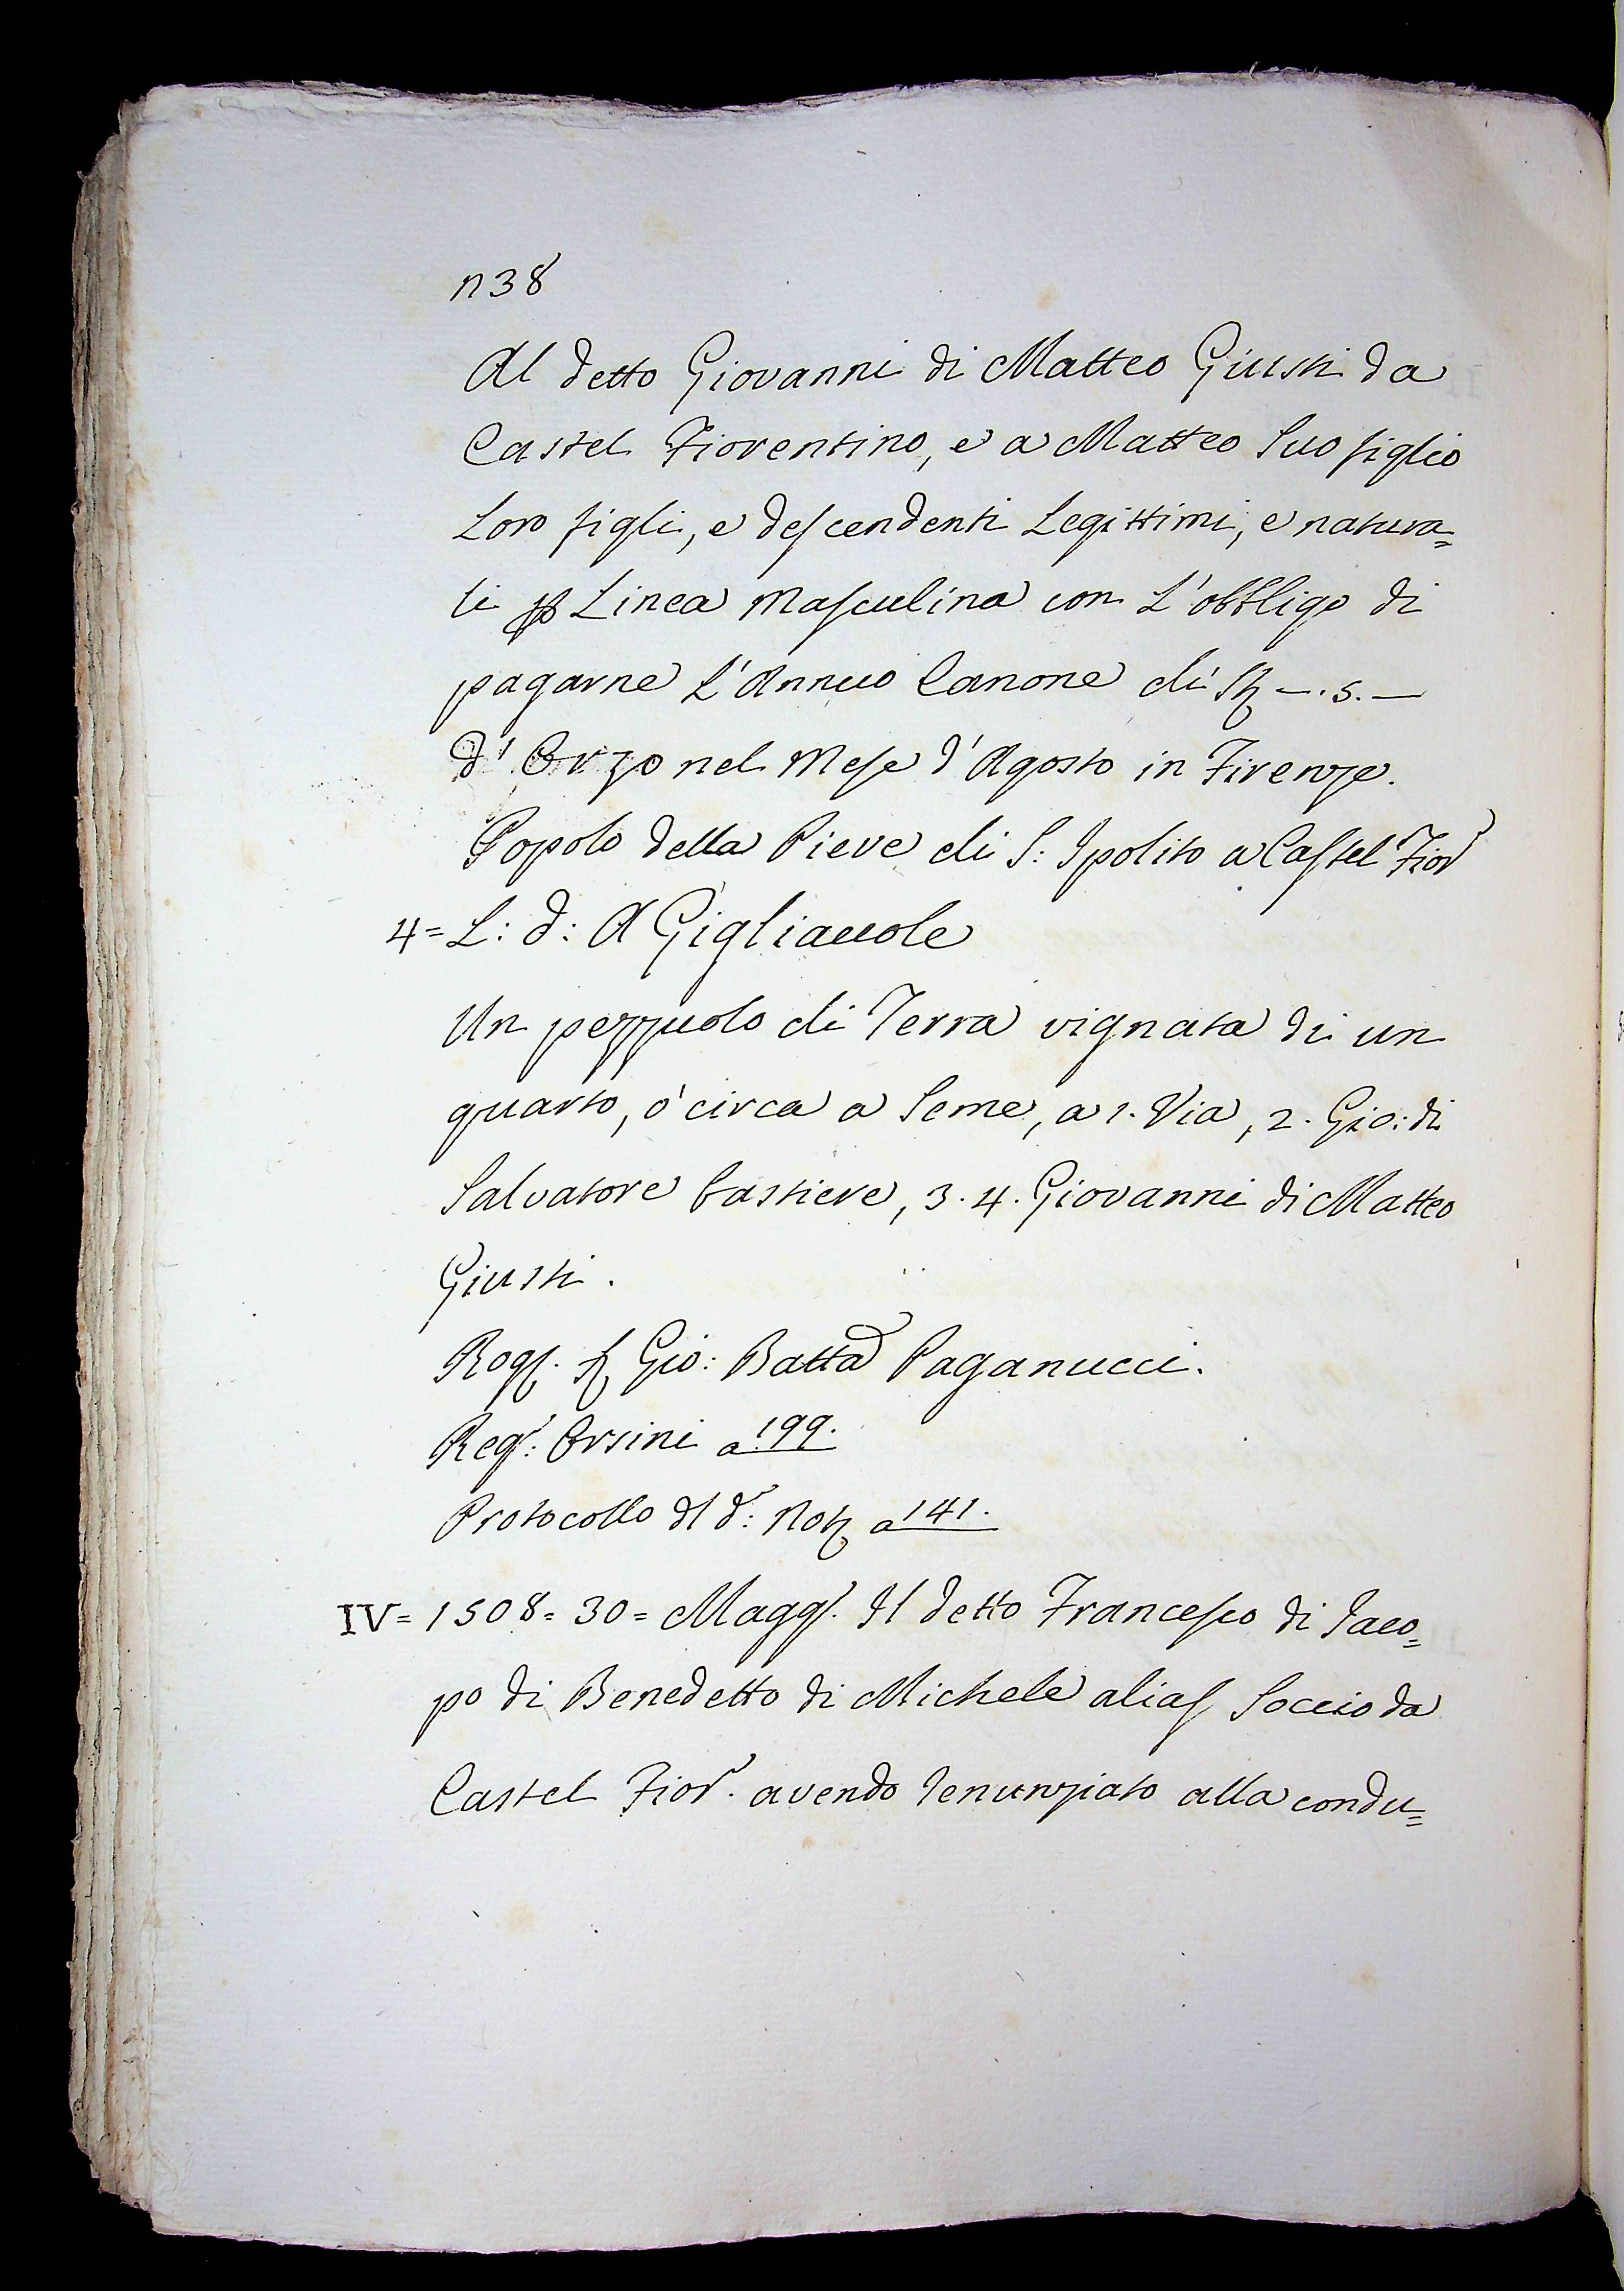 n 38
Al detto Giovanni di Matteo Giusti da
Castel Fiorentino, e a Matteo Suo figlio
Loro figli, e descendenti Legittimi, e natura=
li p Linea Masculina con L'obbligo di
pagarne L'Annuo Canone di St —. 5. —
d'Orzo nel Mese d'Agosto in Firenze.
Popolo della Pieve di S: Ipolito a Castel Fior
4= L: d: A Gigliavole
Un pezzuolo di Terra vignata di un
quarto, o' circa a Seme, a 1. Via, 2. Gio: di
Salvatore Castiere, 3. 4. Giovanni di Matteo
Giusti.
Rog. Gio: Batta Paganucci.
Reg: Orsini a 199.
Protocollo dl d: Not a 141.
IV= 1508= 30= Magg. Il detto Francesco di Iaco=
po di Benedetto di Michele alias Soccio da
Castel Fior. avendo renunziato alla condu=